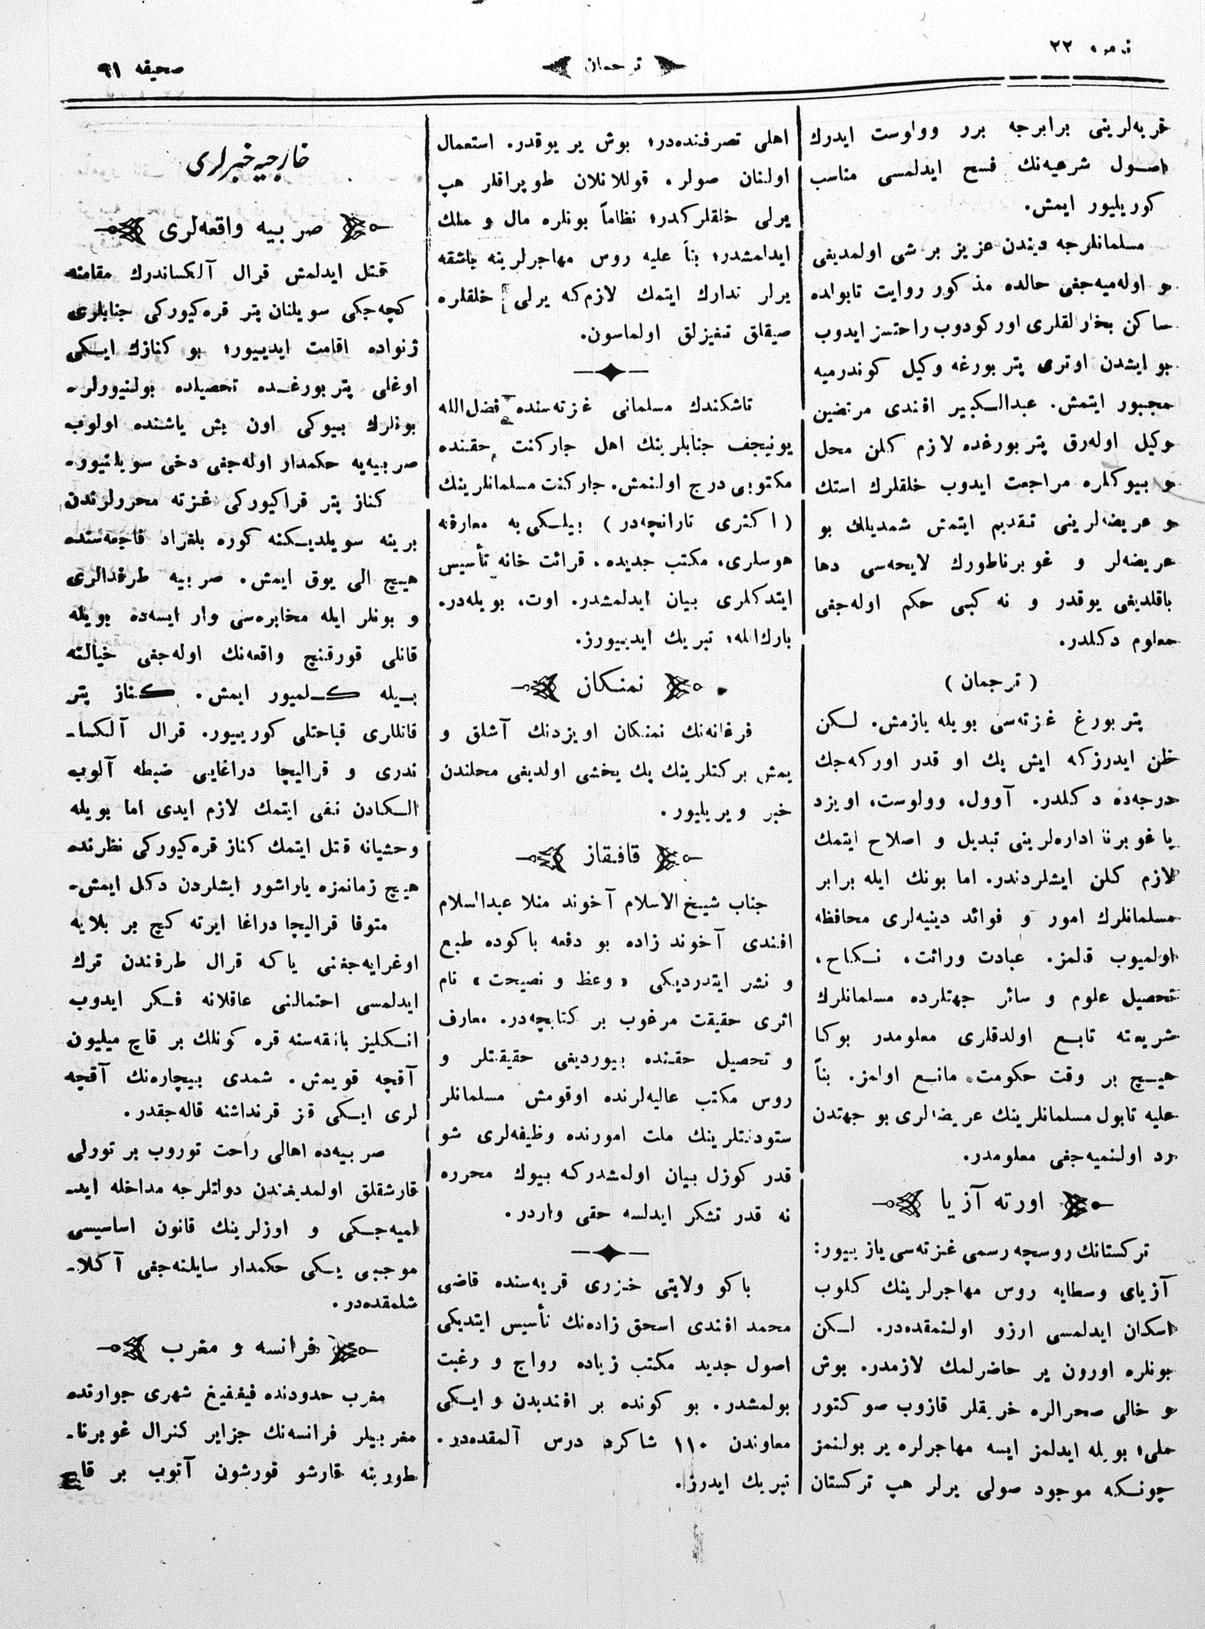 نومرو ٢٢
ترجمان
صحیفه ٩١
قریه‌لرینی برابرجه برر وولوست ایدرك
اصــول شرعیه‌نك فسخ ایدلمسی مناسب
كوریلیور ایمش.
مسلمانلرجه دیندن عزیز بر شی اولمدیغی
و اوله‌میه‌جغی حالده مذكور روایت تابولده
ساكن بخارالقلری اوركودوب راحتسز ایدوب
بو ایشدن اوتری پتربورغه وكیل كوندرمیه
مجبور ایتمش. عبدالــكبیر افندی مرتضین
وكیل اوله‌رق پتربورغده لازم كلن محل
و بیوكلره مراجعت ایدوب خلقلرك استك
و عریضه‌لرینی تقدیم ایتمش شمدیلك بو
عریضه‌لر و غوبرناطورك لایحه‌سی دها
باقلدیغی یوقدر و نه كبی حكم اوله‌جغی
معلوم دكلدر.
( ترجمان )
پتربورغ غزته‌سی بویله یازمش. لــكن
ظن ایدرزكه ایش پك او قدر اوركه‌جك
درجه‌ده دكلدر. آوول، وولوست، اویزد
یا غوبرنا اداره‌لرینی تبدیل و اصلاح ایتمك
لازم كلن ایشلردندر. اما بونك ایله برابر
مسلمانلرك امور و فوائد دینیه‌لری محافظه
اولمیوب قلمز. عبادت وراثت، نــكاح،
تحصیل علوم و سائر جهتلرده مسلمانلرك
شریعته تابــع اولدقلری معلومدر بوكا
هیــچ بر وقت حكومت مانــع اولمز. بنأ
علیه تابول مسلمانلرینك عریضه‌لری بو جهتدن
رد اولنمیه‌جغی معلومدر.
اورته آزیا
تركستانك روسچه رسمی غزته‌سی یازییور:
آزیای وسطایه روس مهاجرلرینك كلوب
اسكان ایدلمسی ارزو اولنمقده‌در. لــكن
بونلره اورون یر حاضرلمك لازمدر. بوش
و خالی صحرالره خریقلر قازوب صو كتور
ملی؛ بویله ایدلمز ایسه مهاجرلره یر بولنمز
چونــكه موجود صولی یرلر هپ تركستان
اهلی تصرفنده‌در؛ بوش یر یوقدر. استعمال
اولنان صولر، قوللانلان طوپراقلر هپ
یرلی خلقلركدر؛ نظاماً بونلره مال و ملك
ایدلمشدر؛ بنأ علیه روس مهاجرلرینه باشقه
یرلر تدارك ایتمك لازم‌كه یرلی خلقلره
صیقلق تنیزلق اولماسون.
تاشكندك مسلمانی غزته‌سنده فضل‌الله
یونیجف جنابلرینك اهل جاركنت حقنده
مكتوبی درج اولنمش. جاركنت مسلمانلرینك
( اكثری تارانچه‌در ) بیلــكی‌یه معارفه
هوسلری، مكتب جدیده، قرائت خانه تأسیس
ایتدكلری بیان ایدلمشدر. اوت، بویله‌در.
بارك‌الله؛ تبریك ایدییورز.
نمنــكان
فرغانه‌نك نمنكان اویزدنك آشلق و
یمش بركتلرینك پك یخشی اولدیغی محلندن
خبر ویریلیور.
قافــقاز
جناب شیخ الاسلام آخوند منلا عبدالسلام
افندی آخوند زاده بو دفعه باكوده طبع
و نشر ایتدردیكی «وعظ و نصیحت» نام
اثری حقیقت مرغوب بر كتابچه‌در. معارف
و تحصیل حقنده بیوردیغی حقیقتلر و
روس مكتب عالیه‌لرنده اوقومش مسلمانلر
ستودنتلرینك ملت امورنده وظیفه‌لری شو
قدر كوزل بیان اولمشدركه بیوك محرره
نه قدر تشكر ایدلسه حقی واردر.
باكو ولایتی خزری قریه‌سنده قاضی
محمد افندی اسحق زاده‌نك تأسیس ایتدیكی
اصول جدید مكتب زیاده رواج و رغبت
بولمشدر. بو كونده بر افندیدن و ایــكی
معاوندن ١١٠ شاكرد درس آلمقده‌در.
تبریك ایدرز.
خارجیه خبرلری
صربیه واقعه‌لری
قتل ایدلمش قرال آلكساندرك مقامنه
كچه‌جكی سویلنان پتر قره‌كیوركی جنابلری
ژنواده اقامت ایدییور؛ بو كنازك ایــكی
اوغلی پتربورغــده تحصیلده بولنیورلر.
بونلرك بیوكی اون بش یاشنده اولوب
صربیه‌یه حكمدار اوله‌جغی دخی سویلنیور.
كناز پتر قراكیوركی غزته محررلرندن
برینه سویلدیــكنه كوره بلغراد فاجعه‌سنده
هیــچ الی یوق ایمش. صربیه طرفدالری
و بونلر ایله مخابره‌سی وار ایسه‌ده بویله
قانلی قورقنچ واقعه‌نك اوله‌جغی خیالنه
بــیله كــلمیور ایمش. كــناز پتر
قانللری قباحتلی كورییور. قرال آلكسا‌ـ
ندری و قرالیچا دراغایی ضبطه آلوب
الــكادن نفی ایتمك لازم ایدی اما بویله
وحشیانه قتل ایتمك كناز قره‌كیوركی نظرنده
هیچ زمانمزه یاراشور ایشلردن دكل ایمش.
متوفا قرالیچا دراغا ایرته كچ بر بلایه
اوغرایه‌جغنی یاكه قرال طرفندن ترك
ایدلمسی احتمالنی عاقلانه فــكر ایدوب
انــكلیز بانقه‌سنه قره كونلك بر قاچ میلیون
آقچه قویمش. شمدی بیچاره‌نك آقچه
لری ایــكی قز قرنداشنه قاله‌جقدر.
صربیه‌ده اهالی راحت توروب بر تورلی
قارشقلق اولمدیغندن دولتلرجه مداخله ایدـ
لمیه‌جــكی و اوزلرینك قانون اساسیسی
موجبی یــكی حكمدار سایلنه‌جغی آكلاـ
شلمقده‌در.
فرانسه و مغرب
مغرب حدودنده فیغیغ شهری جوارنده
مغربیلر فرانسه‌نك جزایر كنرال غوبرناـ
طورینه قارشو قورشون آتوب بر قاچ